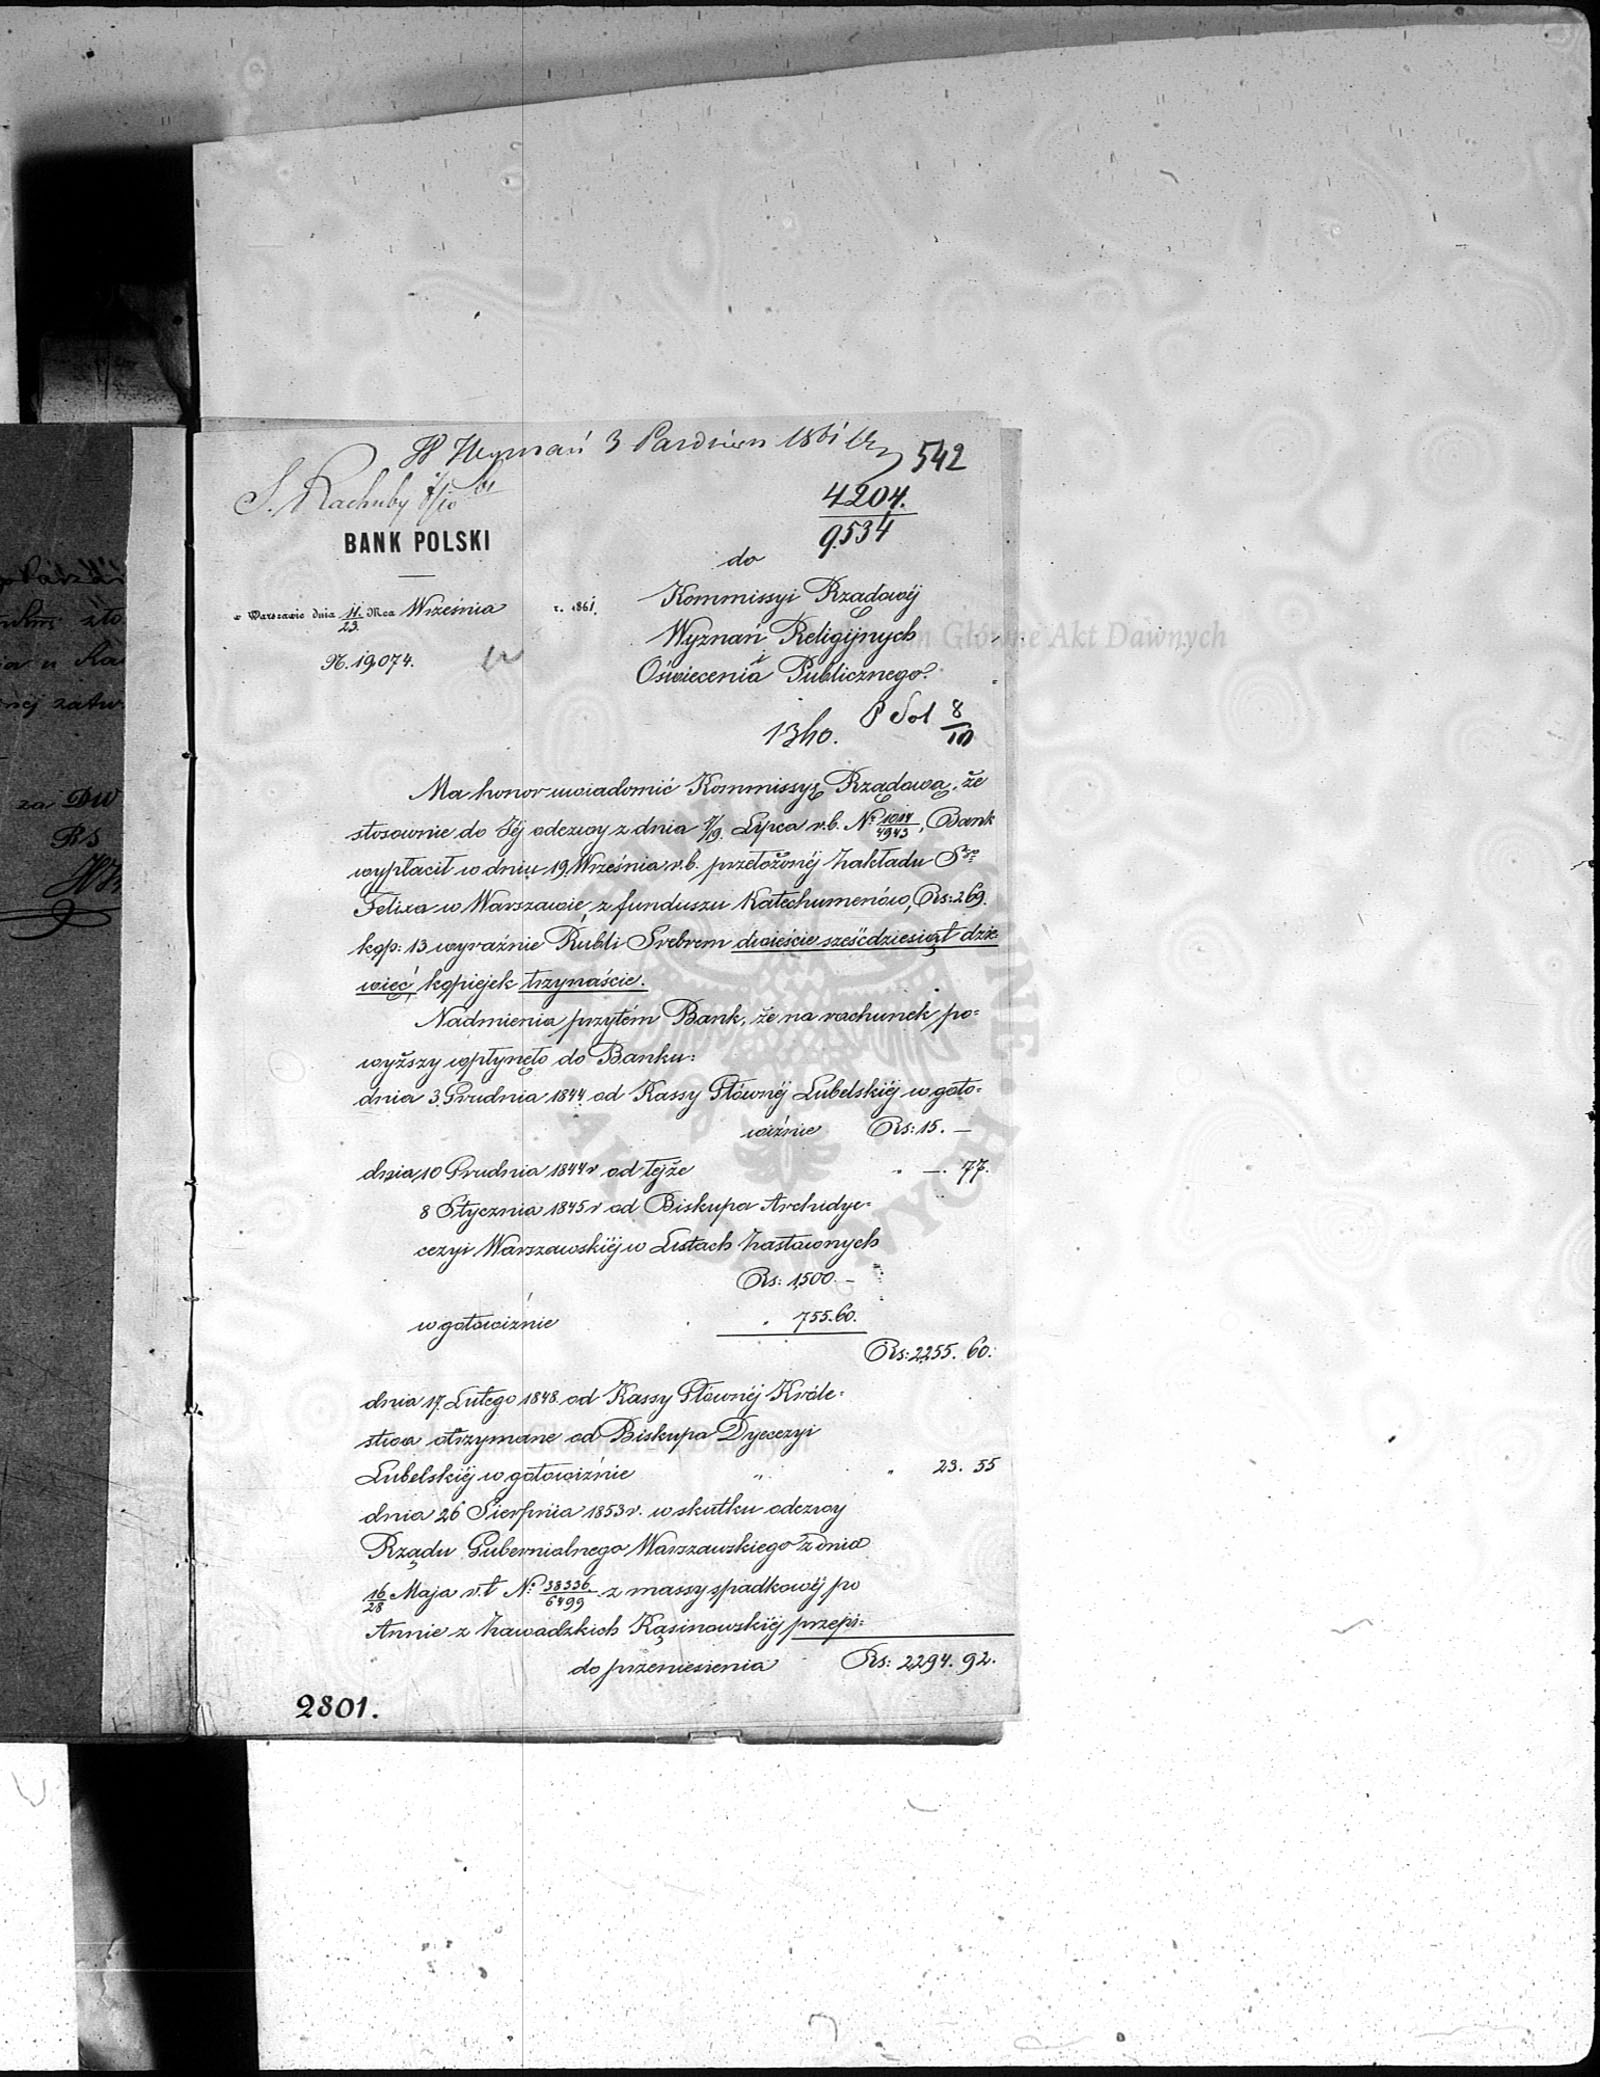 W Wyznań 3 Paździer 1861
542
S. Rachuby 7/10 61
4204.
9534
BANK POLSKI
do
Kommissyi Rządowéj
w Warszawie dnia 11/23 Mca Września r. 1861.
Wyznań Religijnych
i
N. 19,074.
Oświecenia Publicznego.
8/10
Ma honor uwiadomić Kommissyę Rządową, że
stosownie do Jéj odezwy z dnia 7/19. Lipca r.b. No 1014/4943, Bank
wypłacił w dniu 19 Września r.b. przełożonéj Zakładu Sgo
Felixa w Warszawie, z funduszu Katechumenów, Rs: 269.
kop: 13 wyraźnie Rubli Srebrem dwieście sześćdziesiąt dzie=
więć, kopiejek trzynaście.
Nadmienia przytém Bank, że na rachunek po=
wyższy wpłynęło do Banku:
dnia 3 Grudnia 1844 od Kassy Głównéj Lubelskiéj w goto=
wiźnie Rs: 15. —
dnia 10 Grudnia 1844 r od tejże " —. 77.
8 Stycznia 1845 r od Biskupa Archidye=
cezyi Warszawskiéj w Listach Zastawnych
Rs: 1,500. —
w gotowiźnie " 755.60.
Rs: 2255. 60.
dnia 17 Lutego 1848 od Kassy Głównéj Króle=
stwa otrzymane od Biskupa Dyecezyi
Lubelskiéj w gotowiźnie " " 23. 55
dnia 26 Sierpnia 1853 r. w skutku odezwy
Rządu Gubernialnego Warszawskiego z dnia
16/28 Maja r.t No 38336/6499 z massy spadkowéj po
Annie z Zawadzkich Kąsinowskiéj przepi=
do przeniesienia Rs: 2294. 92.
2801.